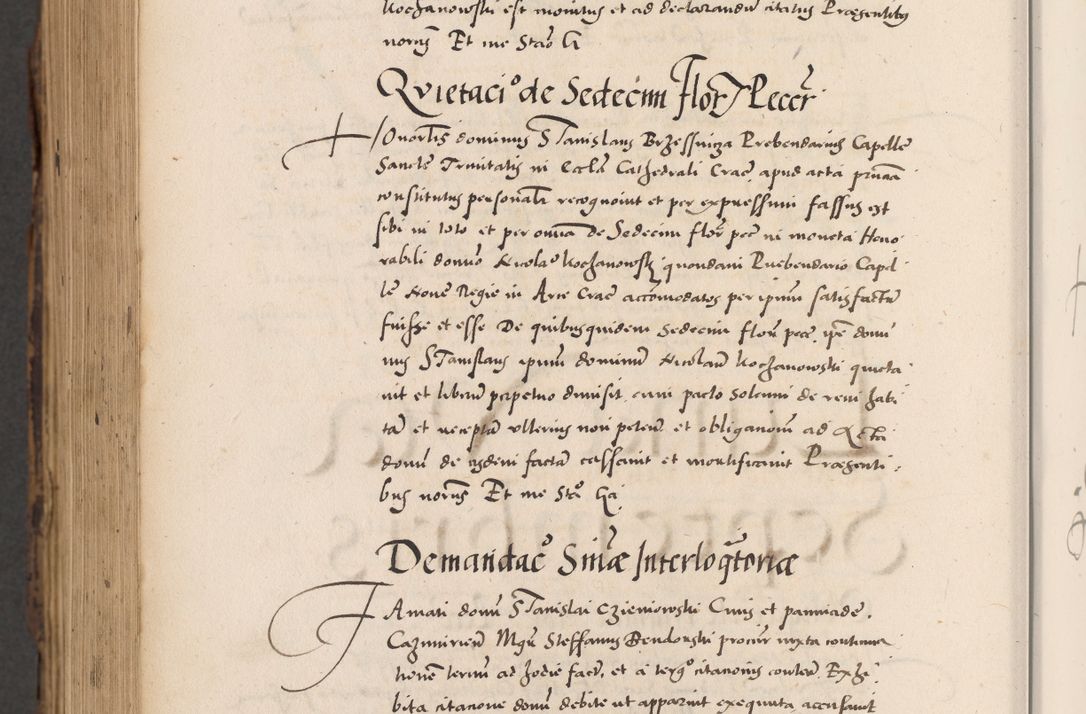 Kochanowski est monitus et ad declarandum citatus Præsentibus
noris Et me Stao G
Qvietacio de Sedecim Flor Peccr
Honorlis dominus Stanislaus Brzesniga Prebendarius Capelle
Sancte Trinitatis in Eccla Cathedrali Crac apud acta
constitutus personalr recognovit et per expressum fassus est
sibi in toto et per omnia de Sedecim flor pec in moneta Hono
rabili domno Nicolao Kochanowski quondam Prebendario Capel
le Nove Regie in Arce Crac accomodatos per ipsum satisfactum
fuisse et esse De quibusquidem Sedecim flor pecc ipse domi
nus Stanislaus ipsum dominum Nicolaum Kochanowski quieta
vit et liberum perpetuo dimisit cum pacto solenni de re non habi
tam et receptam ulterius non petem et obligationem ad
domum de eisdem factam cassavit et mortificavit Præsenti
bus noris Et me Stao
Demandac Sniæ Interloqtoriæ
Famati domni Stanislai Czieniowski Civis et
Cazimiriem Mgr Steffanus Bendonski procur iuxta continua
tionem termini ad hodie factam, et a tergo citationis contentam Exhi
bita citacione domni debite ut apparuit exequuta accusavit